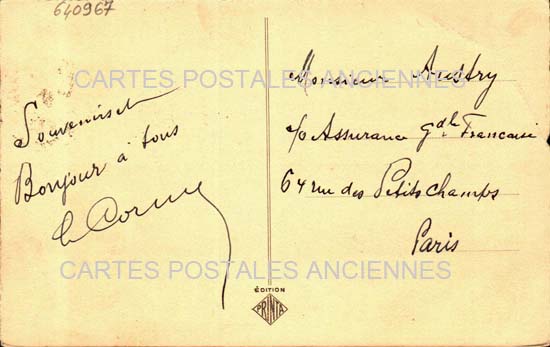 640967
CARTES POSTALES ANCIENNES
Souvenirs et
Bonjour à tous
Monsieur Austry
c/o Assurance Gdle Francaise
64 rue des Petits champs
Paris
CARTES POSTALES ANCIENNES
ÉDITION
PRINTA